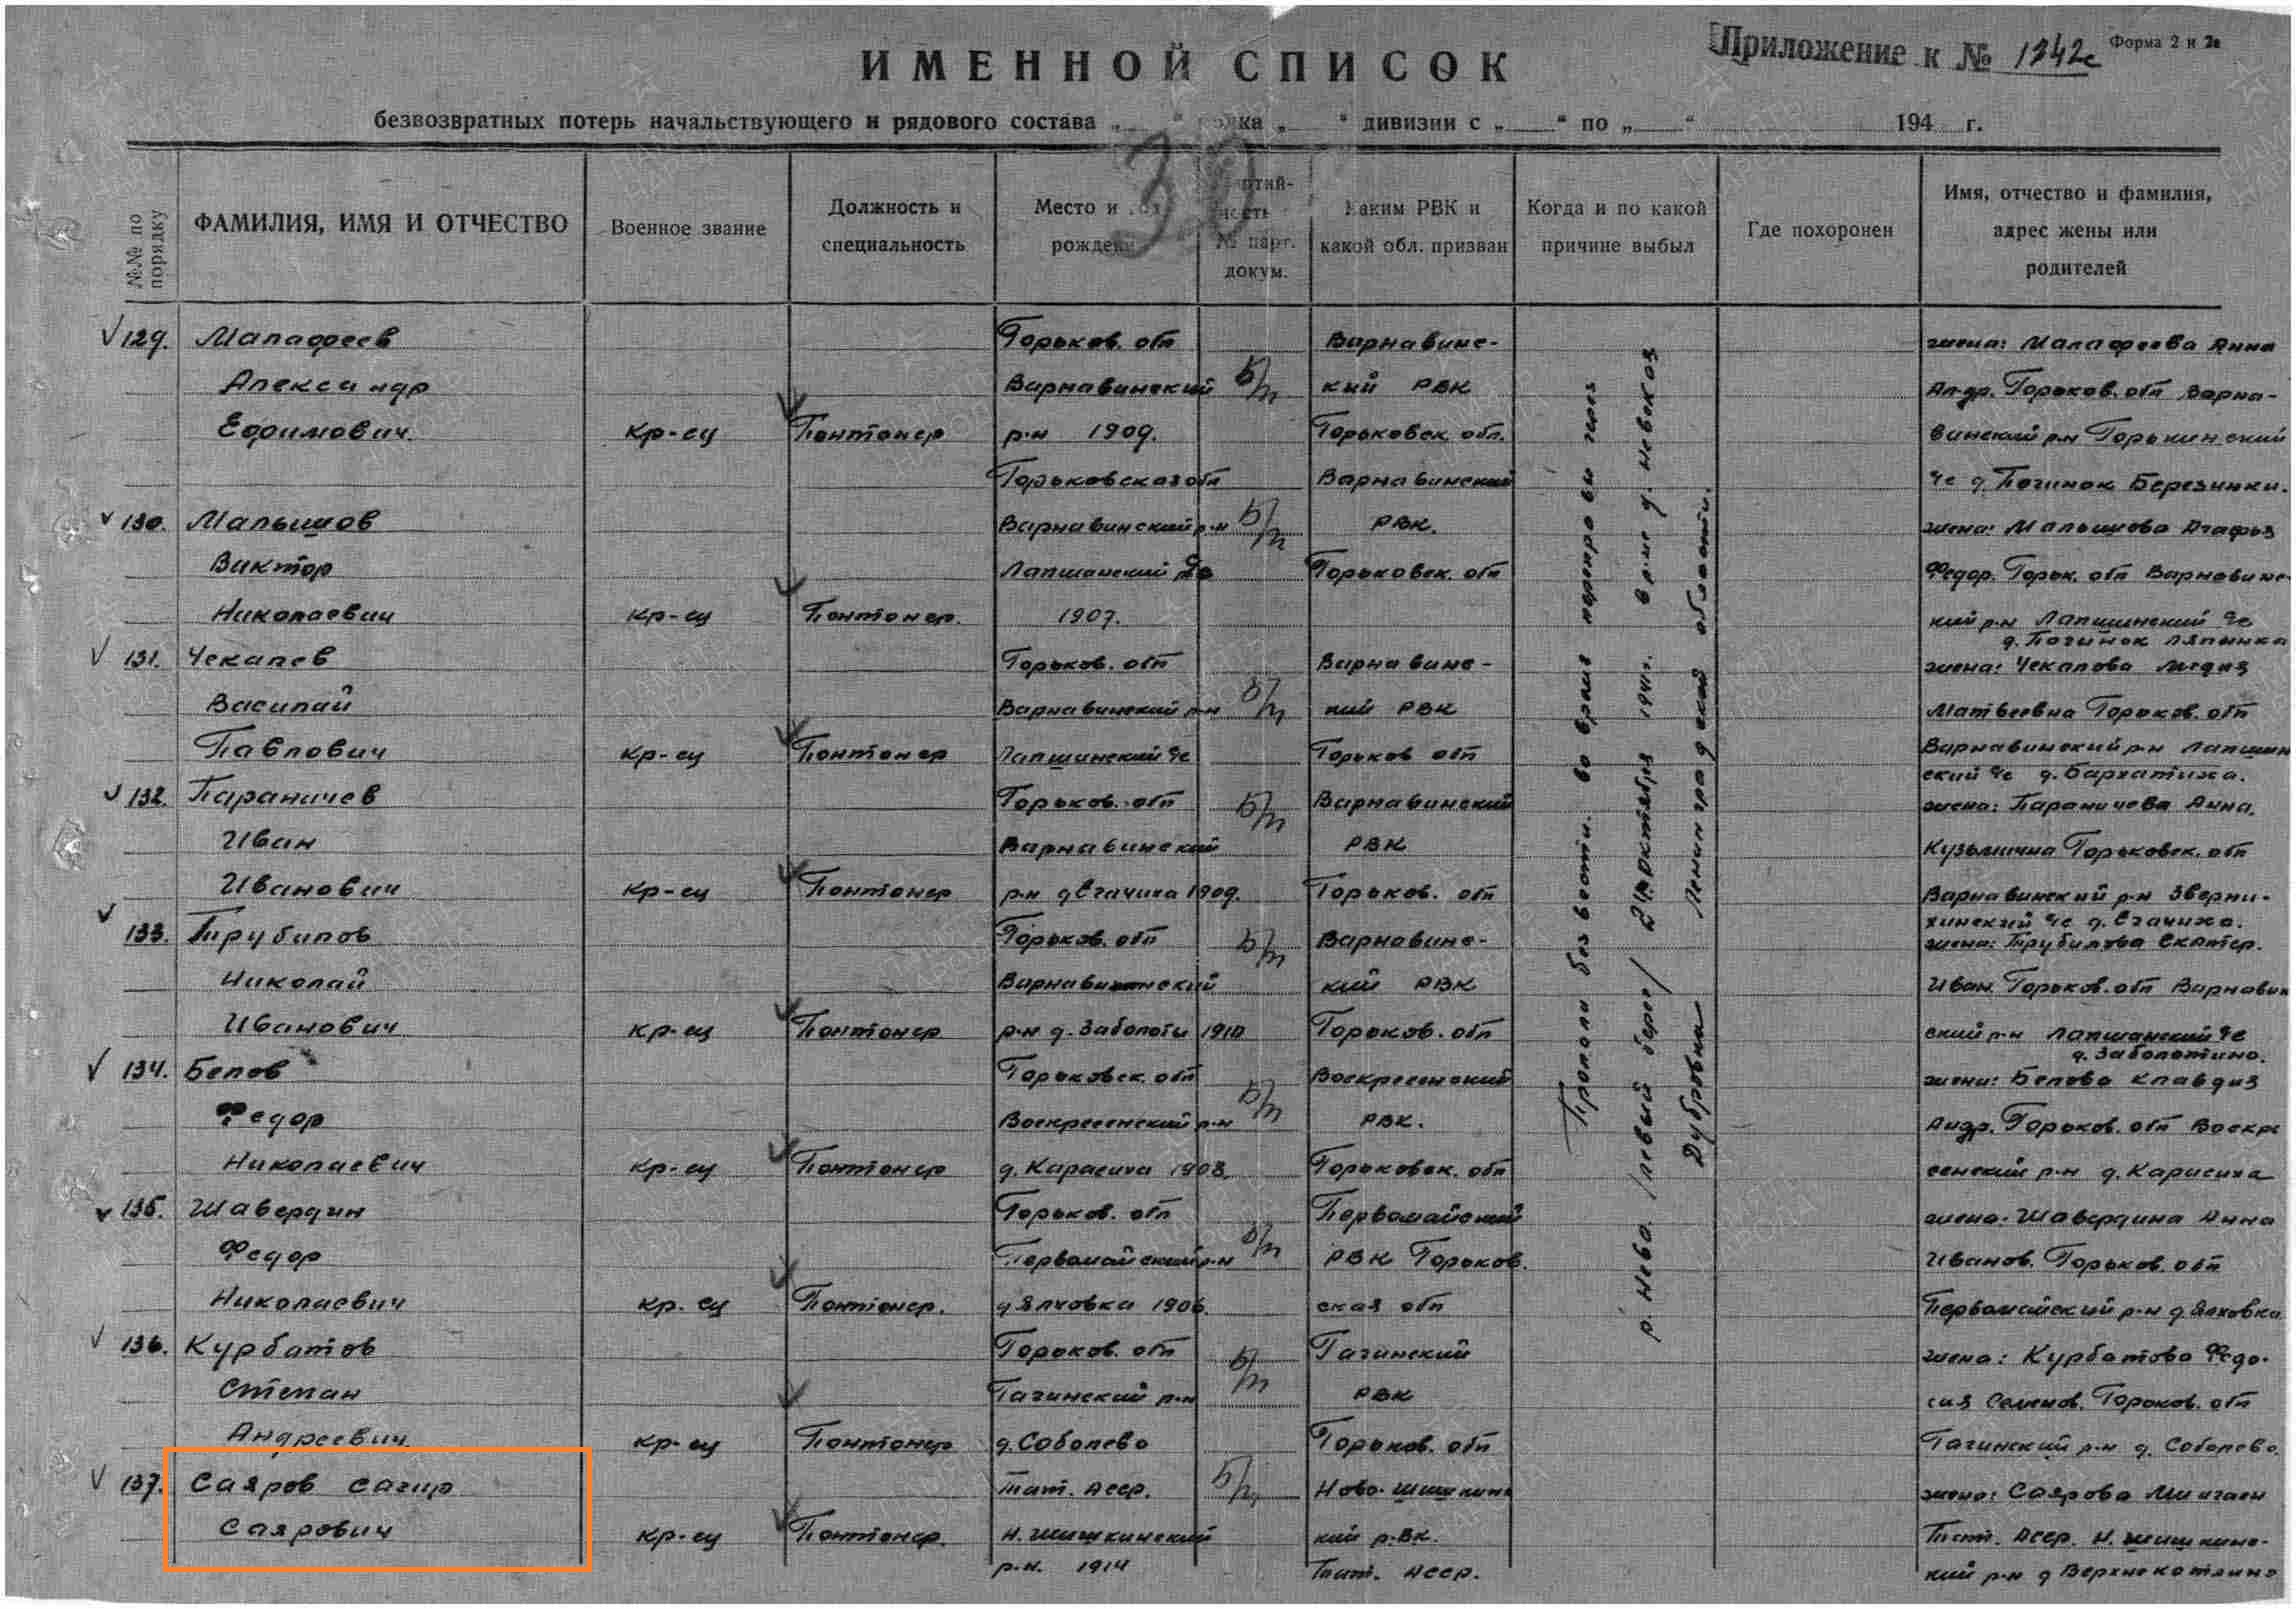 Приложение к № 1342с Форма 2 и 2а
ИМЕННОЙ СПИСОК
безвозвратных потерь начальствующего и рядового состава „ “ полка „ “ дивизии с „ “ по „ “ 194 г.
№№ по порядку
ФАМИЛИЯ, ИМЯ И ОТЧЕСТВО
Военное звание
Должность и специальность
Место и год рождения
№ парт. докум.
Каким РВК и какой обл. призван
Когда и по какой причине выбыл
Где похоронен
Имя, отчество и фамилия, адрес жены или родителей
129. Малафеев Горьков. обл Варнавинс- жена: Малафеева Анна
Александр Варнавинский б/п кий РВК Андр. Горьков. обл Варна-
Ефимович кр-ец Понтонер р-н 1909. Горьковск. обл. винский р-н
Горьковская обл Варнавинский д. Починок Березинки.
130. Малышов Варнавинский р-н б/п РВК. жена: Малышова Агафья
Виктор Лапшанский Горьковск. обл Федор. Горьк. обл Варнавинс-
Николаевич кр-ец Понтонер. 1907. кий р-н Лапшинский
д. Починок
131. Чекалев Горьков. обл Варнавинс- жена: Чекалова Лидия
Василий Варнавинский р-н б/п кий РВК Матвеевна Горьков. обл
Павлович кр-ец Понтонер Лапшинский Горьков обл Варнавинский р-н Лапшин
ский д. Бархатиха.
132. Параничев Горьков. обл б/п Варнавинский жена: Параничева Анна.
Иван Варнавинский РВК Кузьминична Горьковск. обл
Иванович кр-ец Понтонер р-н д Сгачиха 1909. Горьков. обл Варнавинский р-н Зверни-
хинский д. Сгачиха.
133. Трубилов Горьков. обл б/п Варнавинс- жена: Трубилова Екатер.
Николай Варнавинский кий РВК Иван. Горьков. обл Варнавин
Иванович кр-ец Понтонер р-н д. Заболоты 1910 Горьков. обл ский р-н Лапшанский
д. Заболотино.
134. Белов Горьковск. обл Воскресенский жена: Белова Клавдия
Федор Воскресенский р-н б/п РВК. Андр. Горьков. обл Воскре
Николаевич кр-ец Понтонер д. Карасиха 1908. Горьковск. обл сенский р-н д. Карасиха
135. Шавердин Горьков. обл Первомайский жена. Шавердина Анна
Федор Первомайский р-н б/п РВК Горьков. Иванов. Горьков. обл
Николаевич кр. ец Понтонер. д Ялховка 1906. ская обл Первомайский р-н д. Ялховка
136. Курбатов Горьков. обл б/п Гагинский жена: Курбатова Федо-
Степан Гагинский р-н РВК сия Семенов. Горьков. обл
Андреевич кр-ец Понтонер д. Соболево Горьков. обл Гагинский р-н д. Соболево.
137. Саяров Сагир Тат. Асср. б/п Ново-Шишкинс жена: Саярова
Саярович кр-ец Понтонер. Н. Шишкинский кий р.Вк. Тат. Асср. Н. Шишкинс-
р-н. 1914 Тат. Асср. кий р-н д
Пропали без вести. во время переправы через
р. Нева /левый берег/ 24 октября 1941г. в р-не д. Невская
Дубровка Ленинградской области.